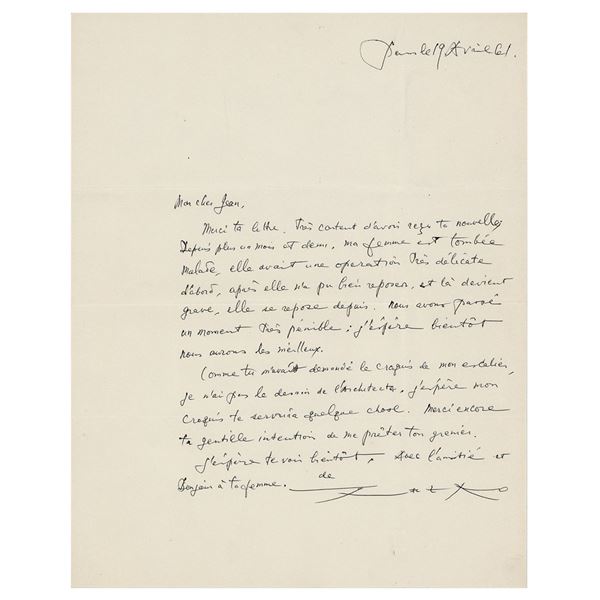 Paris le 19 Avril 61.
Mon cher Jean,
Merci ta lettre. Très content d'avoir reçu ta nouvelles
Depuis plus un mois et demi, ma femme est tombée
malade, elle avait une operation très délicate
d'abord, après elle n'a pu bien reposer, et là devient
grave, elle se repose depuis. Nous avons passé
un moment très pénible ; j'éspère bientôt
nous aurons les meilleux.
Comme tu m'avait demandé le croquis de mon escalier,
je n'ai pas le dessin de l'Architecte, j'éspère mon
croquis te servira quelque chose. Merci encore
ta gentille intention de me prêter ton grenier.
j'éspère te voir bientôt, avec l'amitié et
Bonjour à ta femme. de